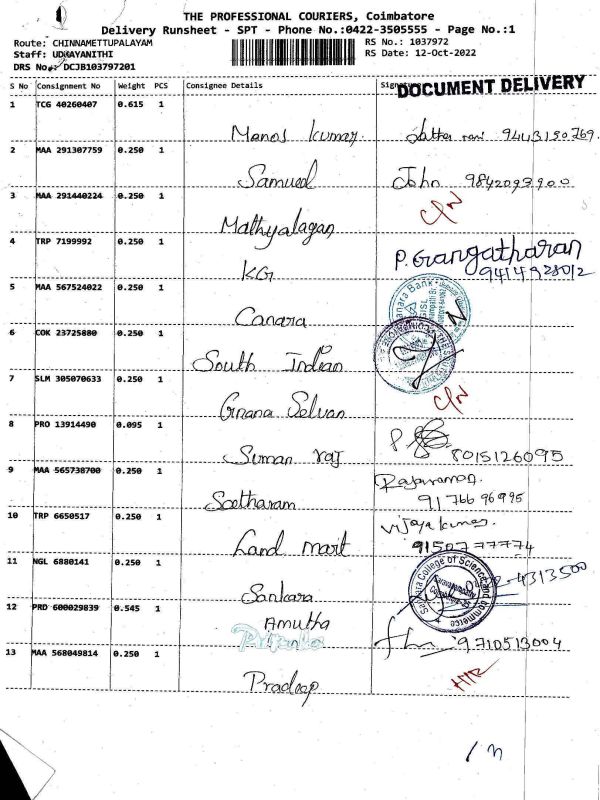 THE PROFESSIONAL COURIERS, Coimbatore
Delivery Runsheet - SPT - Phone No.:0422-3505555 - Page No.:1
Route: CHINNAMETTUPALAYAM RS No.: 1037972
Staff: UDHAYANITHI RS Date: 12-Oct-2022
DRS No.: DCJB103797201
DOCUMENT DELIVERY
S No Consignment No Weight PCS Consignee Details
1 TCG 40260407 0.615 1
Manoj Kumar. 9443150769
2 MAA 291307759 0.250 1
Samuel John 9842093900
3 MAA 291440224 0.250 1
Mathyalagan C/N
4 TRP 7199992 0.250 1
KG P. Gangatharan
9414928012
5 MAA 567524022 0.250 1
Canara
6 COK 23725880 0.250 1
South Indian
7 SLM 305070633 0.250 1
Gnana Selvan C/N
8 PRO 13914490 0.095 1
Suman raj 8015126095
9 MAA 565738700 0.250 1 Rajaraman.
Seetharam 91766 96995
10 TRP 6650517 0.250 1 Vijayakumar.
Land mart 9150777774
11 NGL 6880141 0.250 1
Sankara Sankara College of Science and Commerce -4313500
12 PRD 600029839 0.545 1 Amutha
Priyanka 9710513004
13 MAA 568049814 0.250 1
Pradeep